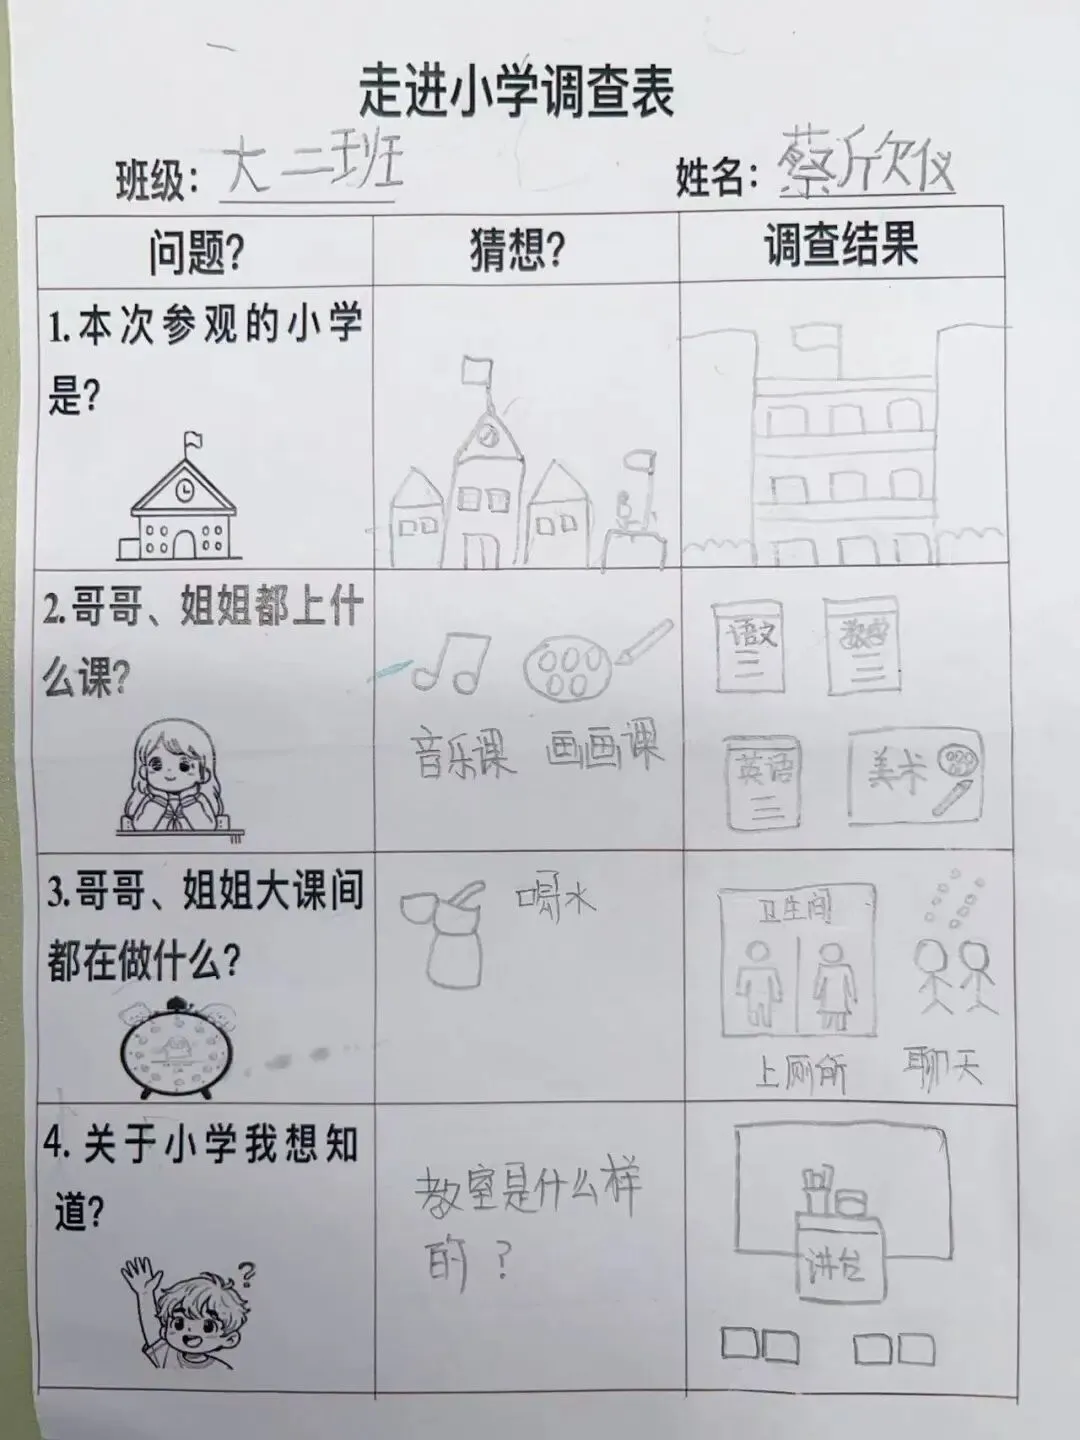 走进小学调查表
班级：大二班 姓名：蔡欣仪
问题？ 猜想？ 调查结果
1.本次参观的小学
是？
2.哥哥、姐姐都上什
么课？
音乐课 画画课
语文 数学
英语 美术
3.哥哥、姐姐大课间
都在做什么？
喝水
卫生间
上厕所 聊天
4.关于小学我想知
道？
教室是什么样
的？
讲台